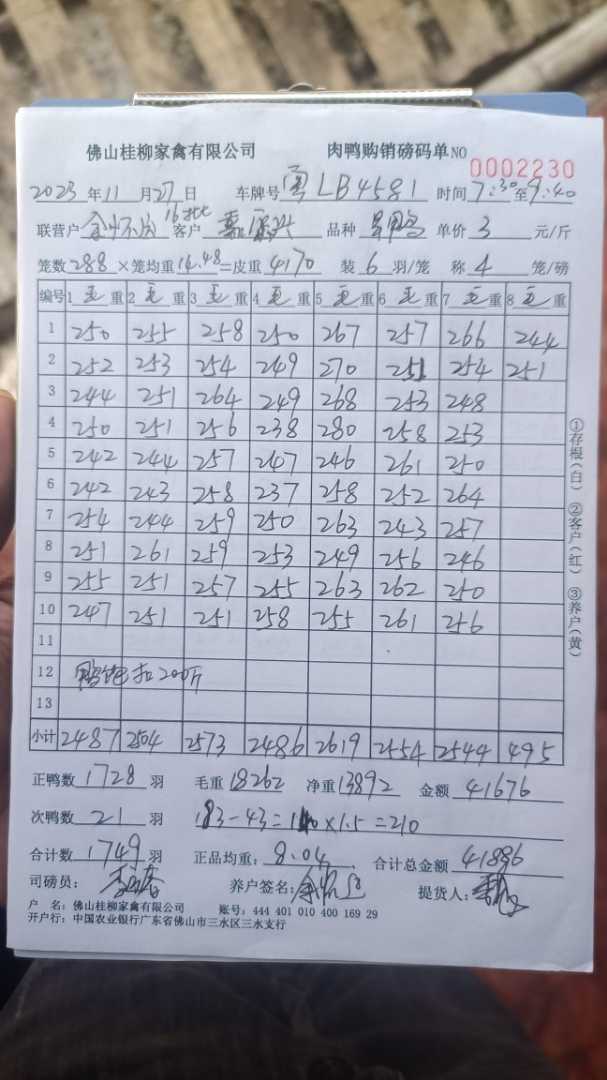 佛山桂柳家禽有限公司 肉鸭购销磅码单 NO 0002230
2023 年 11 月 27 日 车牌号 粤LB4581 时间 7:30 至 9:40
联营户 16批 客户 品种 单价 3 元/斤
笼数 288 ×笼均重 14.48 =皮重 4170 装 6 羽/笼 称 4 笼/磅
编号 1 毛 重 2 毛 重 3 毛 重 4 毛 重 5 毛 重 6 毛 重 7 毛 重 8 毛 重
1 250 255 258 250 267 257 266 244
2 252 253 254 249 270 251 254 251
3 244 251 264 249 268 253 248
4 250 251 256 238 280 258 253
5 242 244 257 247 246 261 250
6 242 243 258 237 258 252 264
7 254 244 259 250 263 243 257
8 251 261 259 253 249 256 246
9 255 251 257 255 263 262 250
10 247 251 251 258 255 261 256
11
12 扣200斤
13
小计 2487 2504 2573 2486 2619 2554 2544 495
正鸭数 1728 羽 毛重 18262 净重 13892 金额 41676
次鸭数 21 羽 183-43=140×1.5=210
合计数 1749 羽 正品均重: 8.04 合计总金额 41886
司磅员: 养户签名: 提货人:
户 名: 佛山桂柳家禽有限公司 账号: 444 401 010 400 169 29
开户行: 中国农业银行广东省佛山市三水区三水支行
①存根(白) ②客户(红) ③养户(黄)